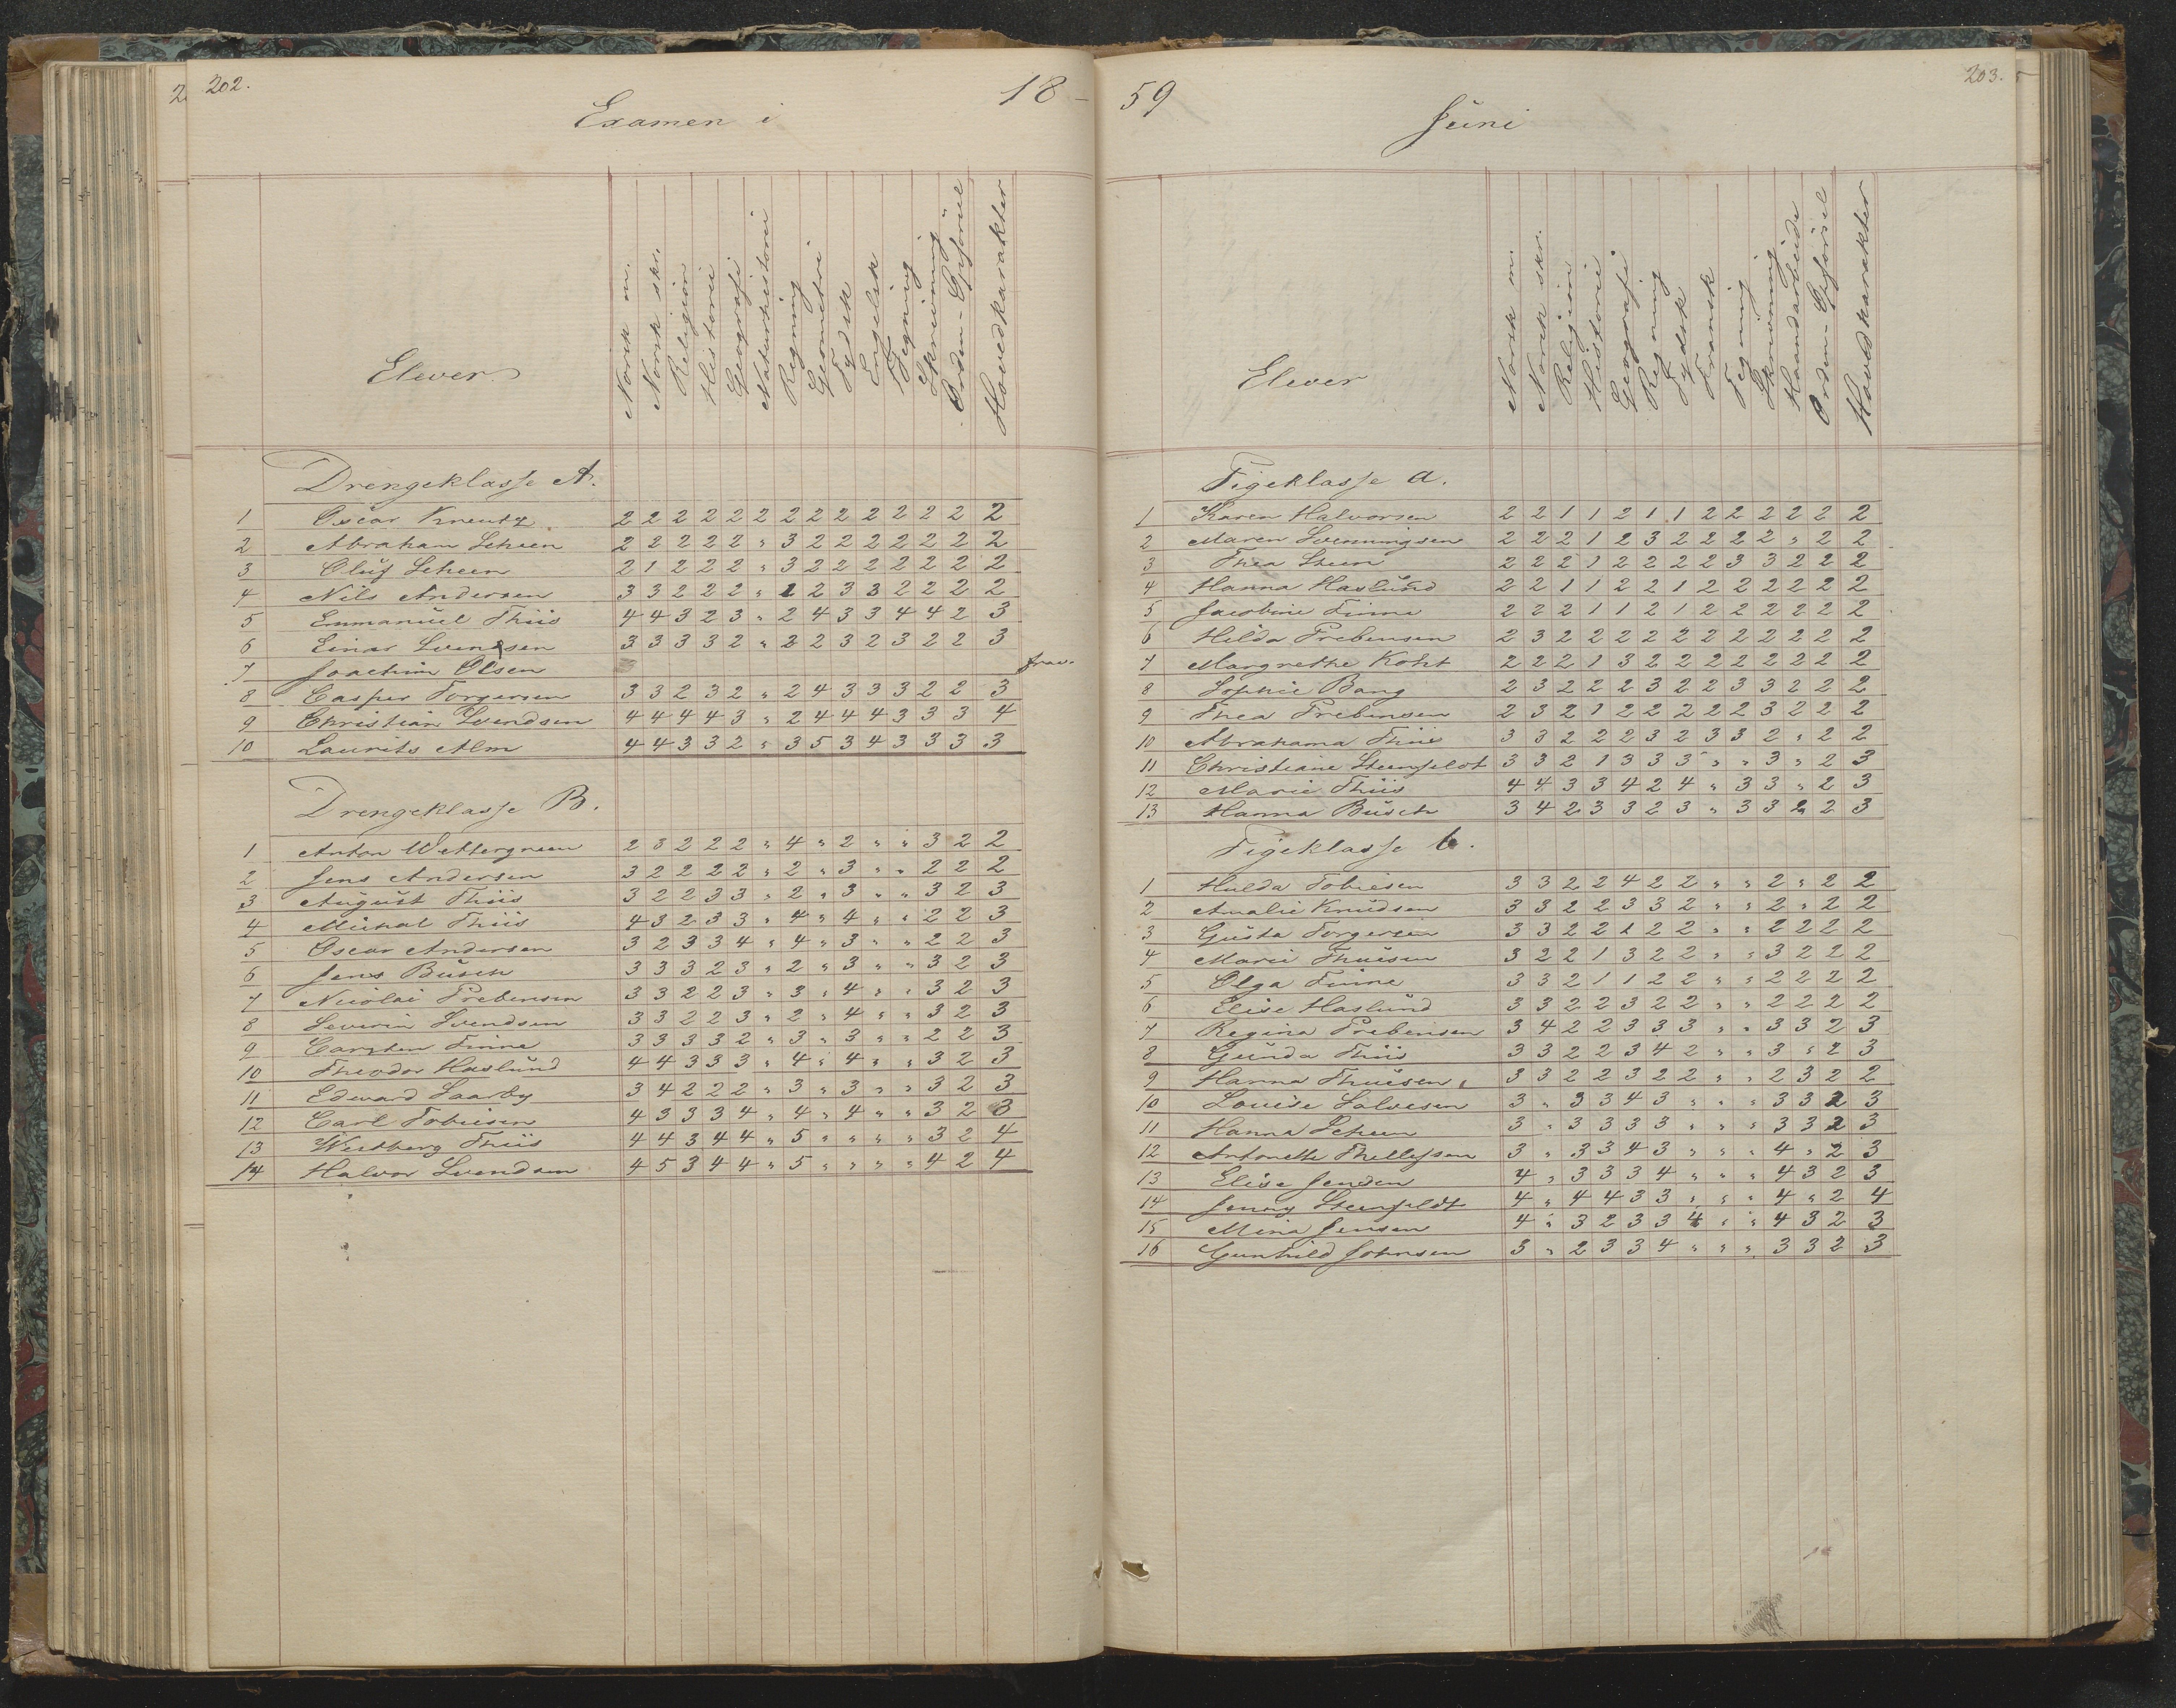 202.
18 -
Examen i
Elever
Norsk m.
Norsk skr.
Religion
Historie
Geografi
Naturhistorie
Regning
Geometri
Tydsk
Engelsk
Tegning
Skrivning
Orden - Opførsel
Hovedkarakter
Drengeklasse A.
1 Oscar Kreutz 2 2 2 2 2 2 2 2 2 2 2 2 2 2
2 Abraham Scheen 2 2 2 2 2 " 3 2 2 2 2 2 2 2
3 Oluf Scheen 2 1 2 2 2 " 3 2 2 2 2 2 2 2
4 Nils Andersen 3 3 2 2 2 " 1 2 3 3 2 2 2 2
5 Emmanuel Thiis 4 4 3 2 3 " 2 4 3 3 4 4 2 3
6 Einar Svendsen 3 3 3 3 2 " 2 2 3 2 3 2 2 3
7 Joachim Olsen frav.
8 Casper Torgersen 3 3 2 3 2 " 2 4 3 3 3 2 2 3
9 Christian Svendsen 4 4 4 4 3 " 2 4 4 4 3 3 3 4
10 Laurits Alm 4 4 3 3 2 " 3 5 3 4 3 3 3 3
Drengeklasse B.
1 Anton Wettergreen 2 3 2 2 2 " 4 " 2 " " 3 2 2
2 Jens Andersen 3 2 2 2 2 " 2 " 3 " " 2 2 2
3 August Thiis 3 2 2 3 3 " 2 " 3 " " 3 2 3
4 Mickal Thiis 4 3 2 3 3 " 4 " 4 " " 2 2 3
5 Oscar Andersen 3 2 3 3 4 " 4 " 3 " " 2 2 3
6 Jens Busch 3 3 3 2 3 " 2 " 3 " " 3 2 3
7 Nicolai Prebensen 3 3 2 2 3 " 3 " 4 " " 3 2 3
8 Severin Svendsen 3 3 2 2 3 " 2 " 4 " " 3 2 3
9 Carsten Finne 3 3 3 3 2 " 3 " 3 " " 2 2 3
10 Theodor Haslund 4 4 3 3 3 " 4 " 4 " " 3 2 3
11 Edward Saarby 3 4 2 2 2 " 3 " 3 " " 3 2 3
12 Carl Tobiesen 4 3 3 3 4 " 4 " 4 " " 3 2 3
13 Westberg Thiis 4 4 3 4 4 " 5 " " " " 3 2 4
14 Halvor Svendsen 4 5 3 4 4 " 5 " " " " 4 2 4
59
203.
Juni
Elever
Norsk m.
Norsk skr.
Religion
Historie
Geografi
Regning
Tydsk
Fransk
Tegning
Skrivning
Haandarbeide
Orden - Opførsel
Hovedkarakter
Pigeklasse a.
1 Karen Halvorsen 2 2 1 1 2 1 1 2 2 2 2 2 2
2 Maren Svenningsen 2 2 2 1 2 3 2 2 2 2 " 2 2
3 Thea Steen 2 2 2 1 2 2 2 2 3 3 2 2 2
4 Hanna Haslund 2 2 1 1 2 2 1 2 2 2 2 2 2
5 Jacobine Finne 2 2 2 1 1 2 1 2 2 2 2 2 2
6 Hilda Prebensen 2 3 2 2 2 2 2 2 2 2 2 2 2
7 Margrethe Koht 2 2 2 1 3 2 2 2 2 2 2 2 2
8 Sophie Bang 2 3 2 2 2 3 2 2 3 3 2 2 2
9 Thea Prebensen 2 3 2 1 2 2 2 2 2 3 2 2 2
10 Abrahama Thiis 3 3 2 2 2 3 2 3 3 2 " 2 2
11 Christiane Steenfeldt 3 3 2 1 3 3 3 " " 3 " 2 3
12 Marie Thiis 4 4 3 3 4 2 4 " 3 3 " 2 3
13 Hanna Busch 3 4 2 3 3 2 3 " 3 3 2 2 3
Pigeklasse b.
1 Hulda Tobiesen 3 3 2 2 4 2 2 " " 2 " 2 2
2 Amalie Knudsen 3 3 2 2 3 3 2 " " 2 " 2 2
3 Gusta Torgersen 3 3 2 2 1 2 2 " " 2 2 2 2
4 Marie Thuesen 3 2 2 1 3 2 2 " " 3 2 2 2
5 Olga Finne 3 3 2 1 1 2 2 " " 2 2 2 2
6 Elise Haslund 3 3 2 2 3 2 2 " " 2 2 2 2
7 Regina Prebensen 3 4 2 2 3 3 3 " " 3 3 2 3
8 Gunda Thiis 3 3 2 2 3 4 2 " " 3 " 2 3
9 Hanna Thuesen 3 3 2 2 3 2 2 " " 2 3 2 2
10 Louise Salvesen 3 " 3 3 4 3 " " " 3 3 2 3
11 Hanna Scheen 3 " 3 3 3 3 " " " 3 3 2 3
12 Antonette Thellefsen 3 " 3 3 4 3 " " " 4 " 2 3
13 Elise Jensen 4 " 3 3 3 4 " " " 4 3 2 3
14 Jenny Steenfeldt 4 " 4 4 3 3 " " " 4 " 2 4
15 Mina Jensen 4 " 3 2 3 3 4 " " 4 3 2 3
16 Gunhild Johnsen 3 " 2 3 3 4 " " " 3 3 2 3